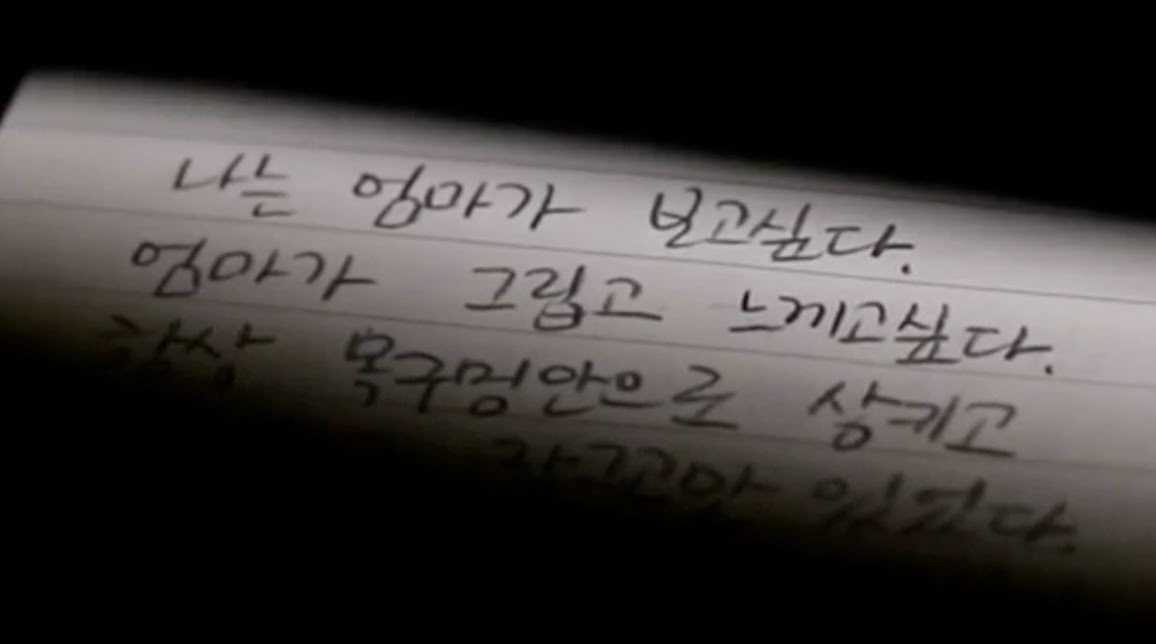 나는 엄마가 보고싶다.
엄마가 그립고 느끼고싶다.
항상 목구멍안으로 삼키고
있었다.